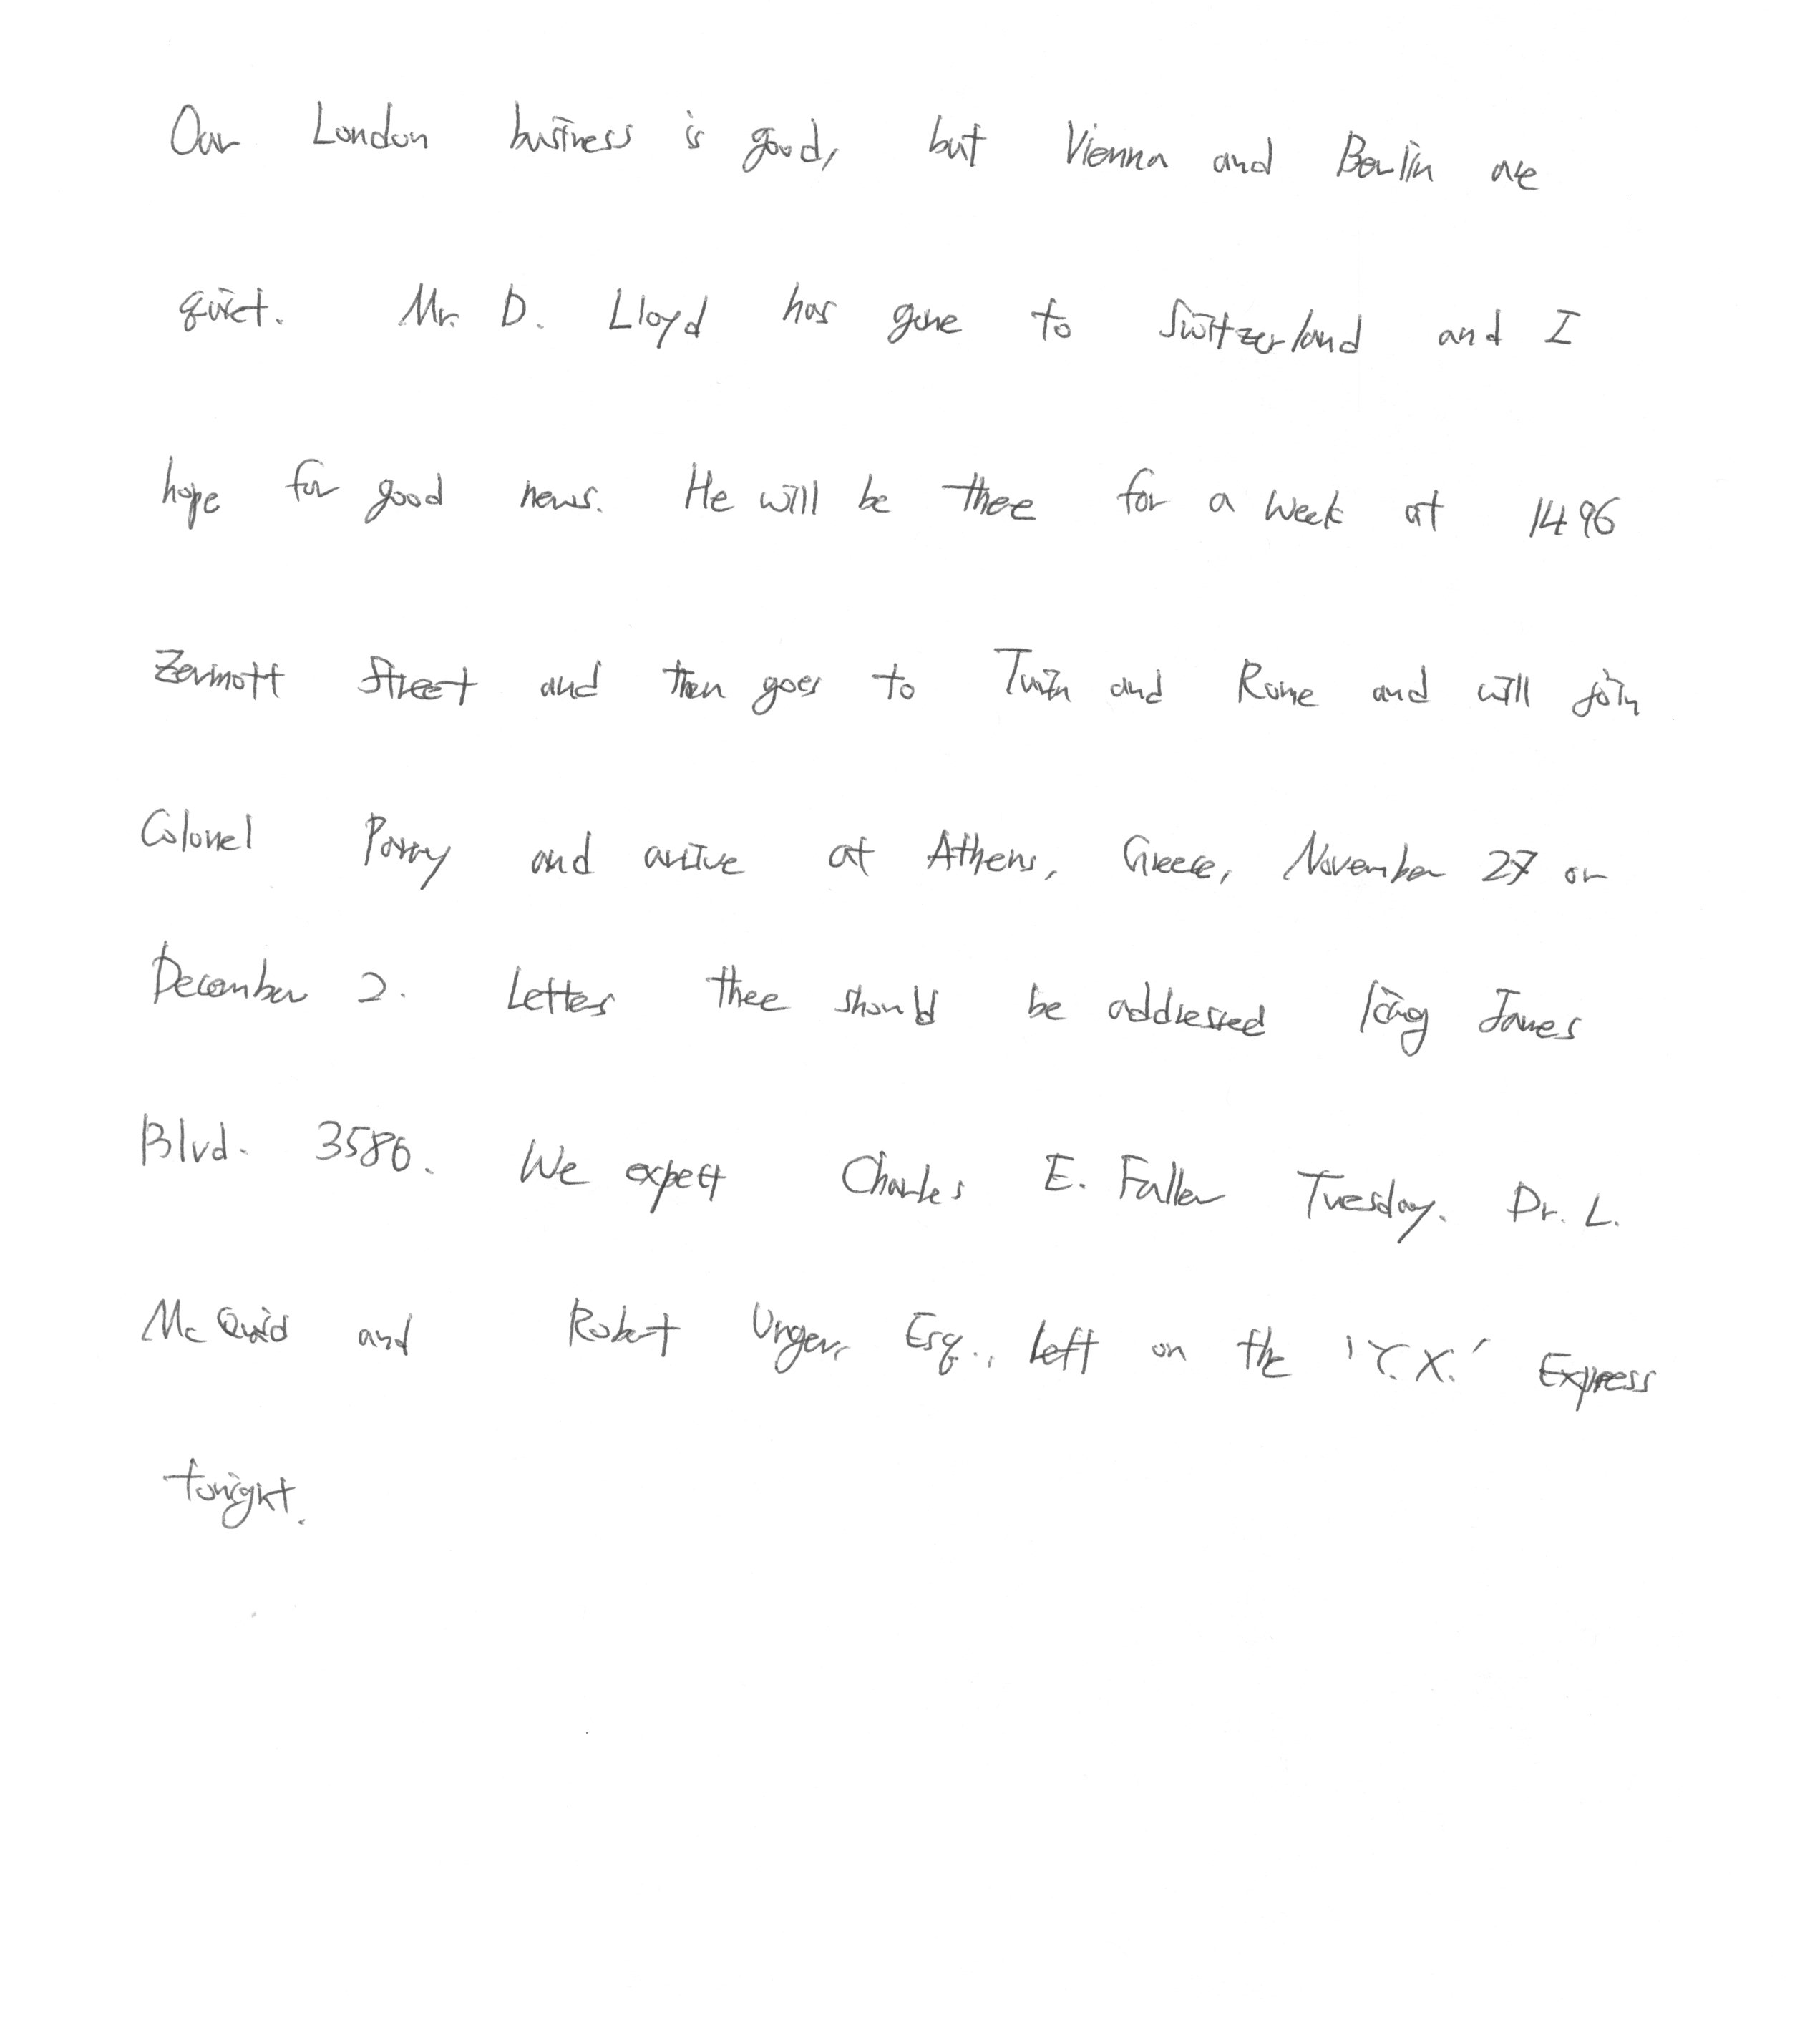 Our London business is good, but Vienna and Berlin are
quiet. Mr. D. Lloyd has gone to Switzerland and I
hope for good news. He will be there for a week at 1496
Zermott Street and then goes to Turin and Rome and will join
Colonel Parry and arrive at Athens, Greece, November 27 or
December 2. Letters there should be addressed King James
Blvd. 3580. We expect Charles E. Fuller Tuesday. Dr. L.
McQuid and Robert Unger, Esq., left on the 'Y.X.' Express
tonight.